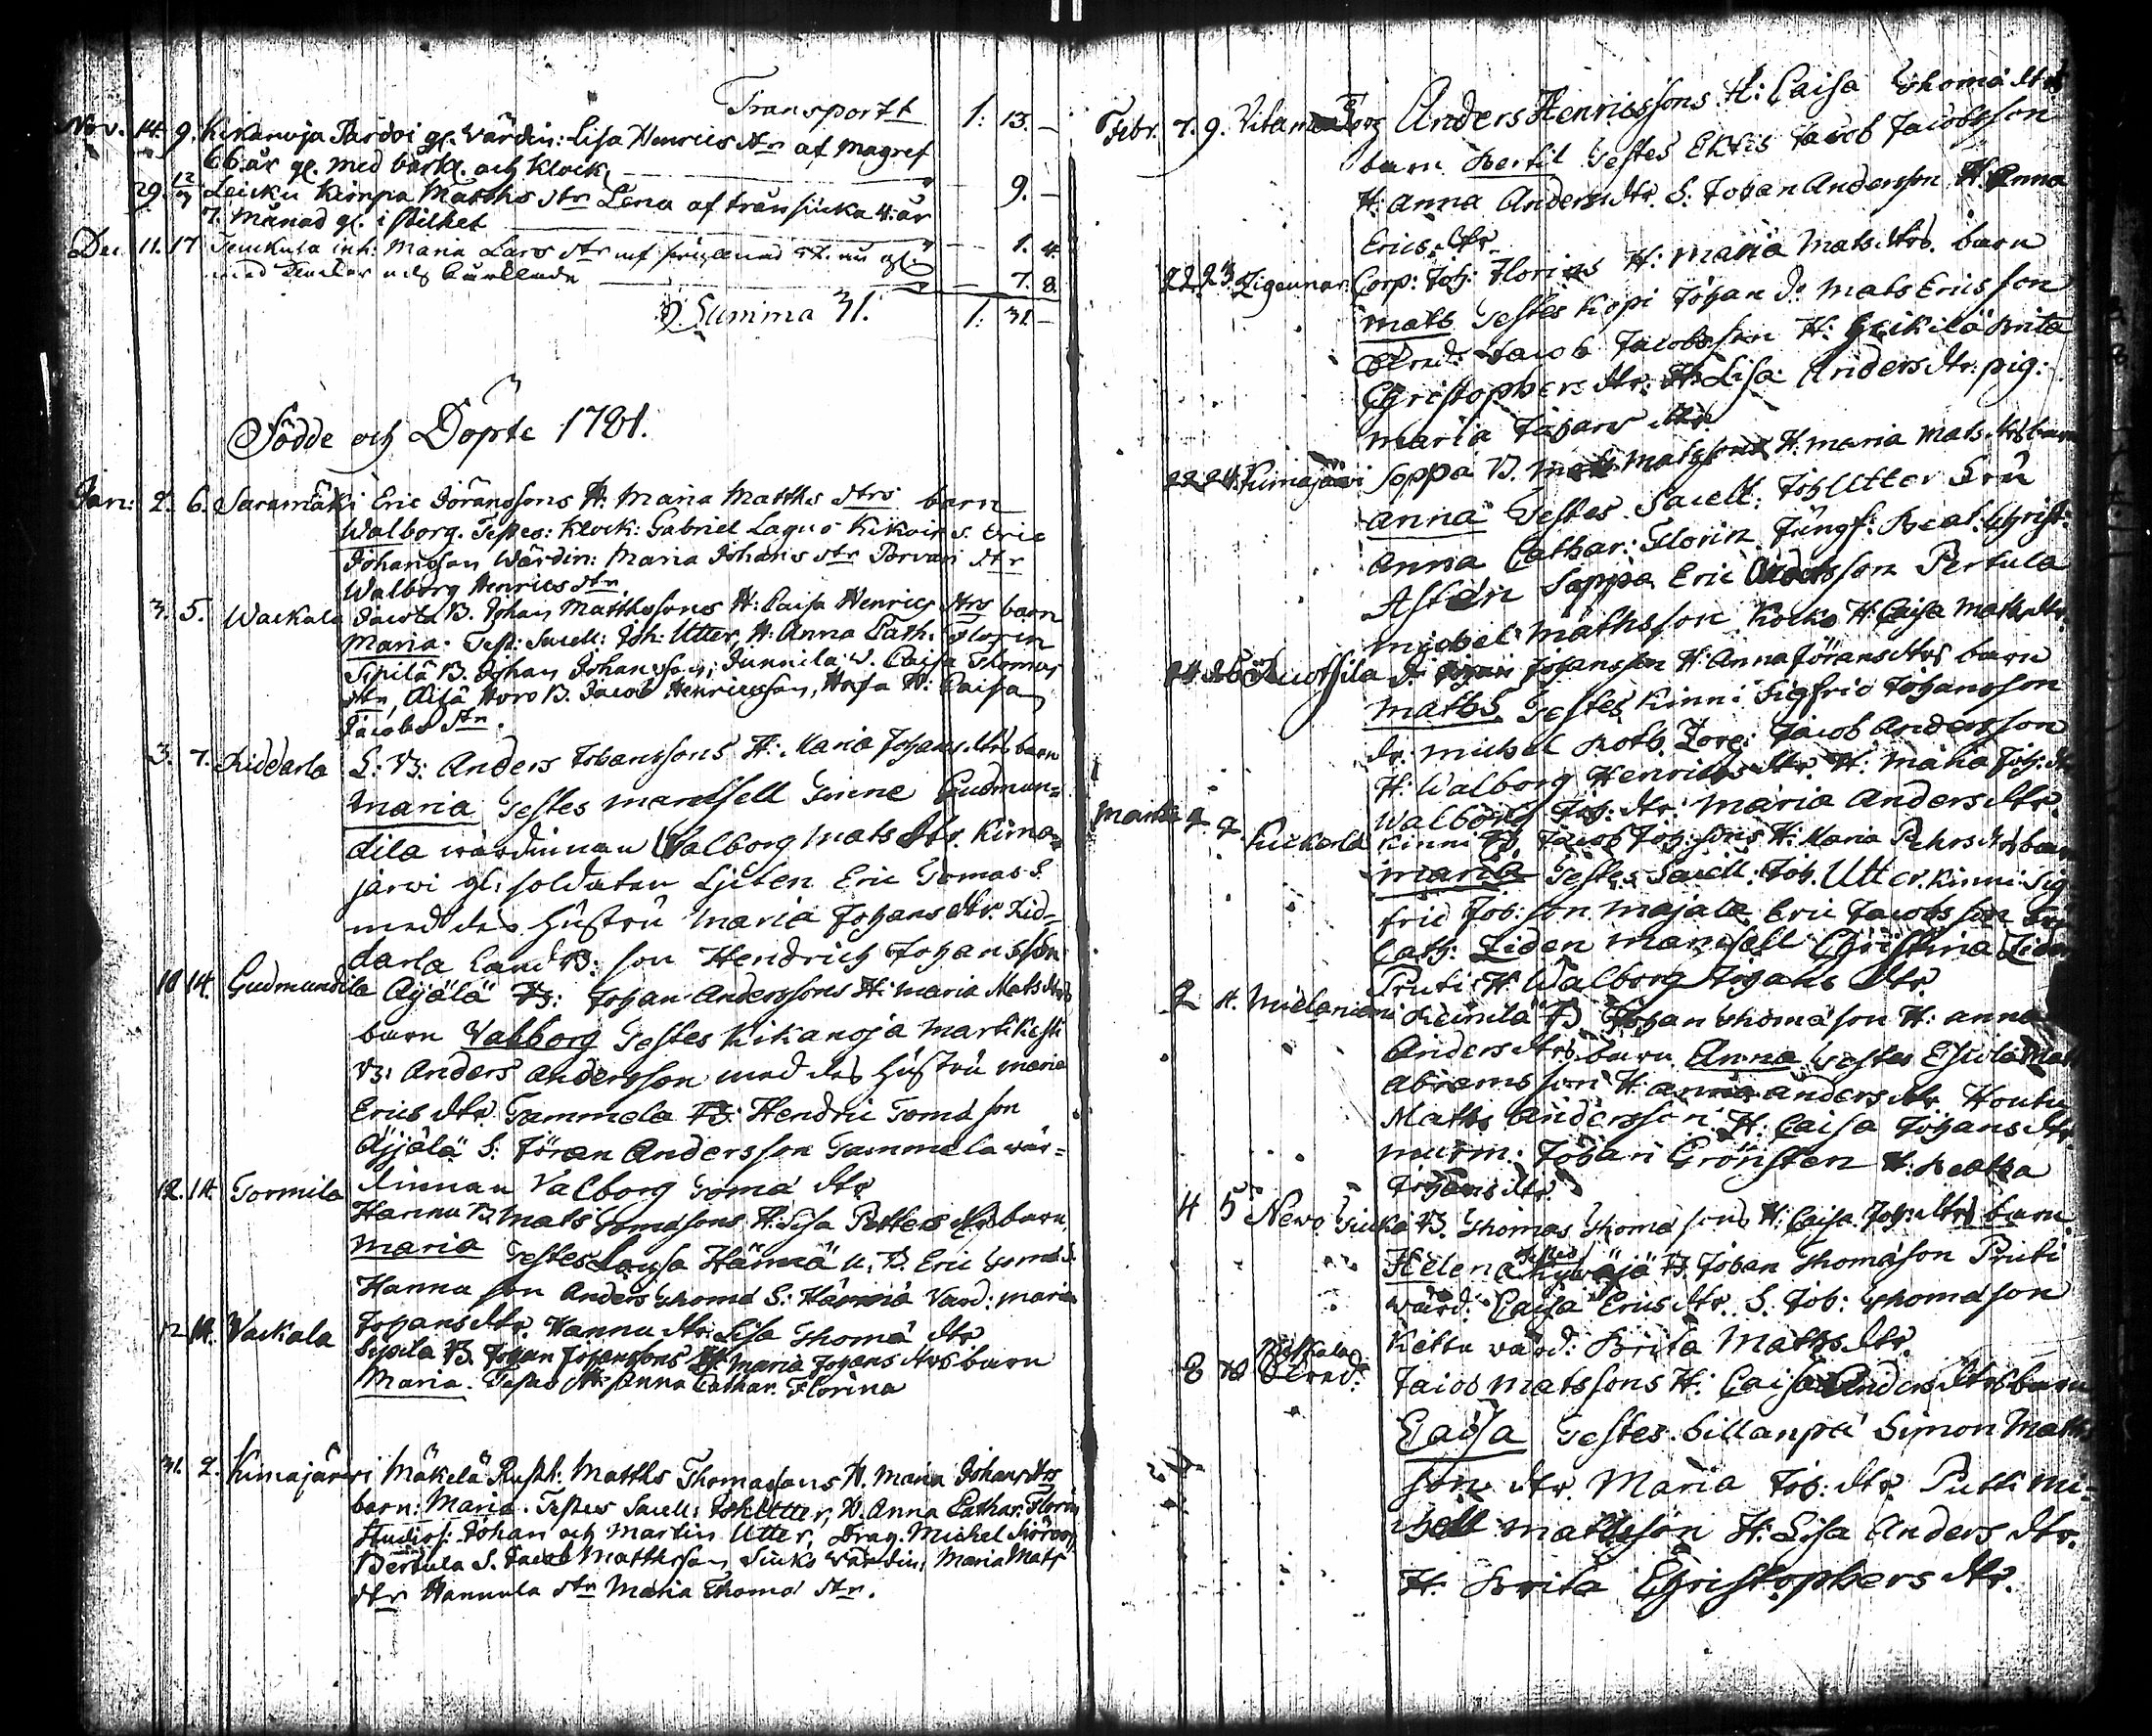 Transportt 1: 13. —
Nov. 14. 9. Kikanoja Pardvi gl. Wärdin: Lisa Henrics dtr af Magref
66 år gl. med barkl. och Klock. 9. —
29. Leicku Kimpa Matths dtr Lena af trånsiuka 4: år
7. månad gl. i stilhet 1. 4.
Dec 11. 17 inh: Maria Lars dtr af gl.
med 7. 8.
Summa 31. 1: 31. —
Födde och Döpte 1781.
Jan: 2. 6. Saramäki Eric Jöranssons H: Maria Matths dtrs barn
Walborg. Testes: Klock: Gabriel Lagus Kikois S. Eric
Johansson Wärdin: Maria Johans dtr Porvari dtr
Walborg Henrics dtr.
3. 5. Wackala Jacola B. Johan Matthssons H: Caisa Henrics dtrs barn
Maria. Test: Sacell: Joh: Utter, H: Anna Cath. Florin
Sipilä B. Johan Johansson, Junnila W. Caisa Thomas
dtr, Äilä Horo B. Jacob Henricsson, H: Caisa
Jacobs dtr.
3. 7. Riddarla L: B: Anders Johanssons H: Maria Johans dtrs barn
Maria Testes mamsell Gudmun=
dila wärdinnan Walborg Mats dtr. Kima=
järvi gl. soldaten Eric Tomas S.
med des hustru Maria Johans dtr. Rid-
darla Land B: son Hendrich Johansson
10 14. Gudmundila Äijälä B: Johan Anderssons H: Maria Mats dtrs
barn Valborg Testes Kikanoja
B: Anders Andersson med des hustru Maria
Erics dtr. Tammela B: Hendric Toma son
Äijälä S: Jöran Andersson Tammela wär=
dinnan Valborg Toma dtr
12. 14. Tormila Hannu B. Mats Tomasons H: Lisa Petters dtrs barn
Maria Testes Häm̃ä u. B. Eric Toma S.
Hannu son Anders Thoma S: Värd: Maria
Johans dtr. Hannu dtr. Lisa Thoma dtr
12 14. Vackala Sipila B. Johan Johanssons H: Maria Johans dtrs barn
Maria. Testes H: Anna Cathar. Florina
31. 2. Kimajärwi Mäkelä Rusth: Matths Thomassons H. Maria Johans dtrs
barn: Maria. Testes Sacell: Joh Utter, H. Anna Cathar. Florin,
Studios: Johan och Martin Utter, Drag. Michel
Bertula S. Jacob Matthsson, wärdin, Maria Mats
dtr Hannula dtr Maria Thoma dtr.
Febr. 7. 9. Anders Henricssons H: Caisa Thoma dtrs
barn Bertil Testes Jacob Jacobsson
H: Anna Anders dtr. S: Johan Andersson H. Anna
Erics dtr.
22. 23. Corp: Joh: Florins H: Maria Mats dtrs. barn
Mats Testes Kopi Johan D: Mats Ericsson
Jacob Jacobsson H: Heikilä Brita
Christophers dtr: H: Lisa: Anders dtr: pig:
Maria Johans dtr
22. 24. Kimajärvi Soppa B. Mats Matssons H. Maria Mats dtrs barn
Anna Testes Sacell: Joh Utter Fru
Anna Cathar: Florin Jungf: Beat. Christ:
Soppa Eric Andersson Pertula
Michel Mathsson H: Caisa Mats dtr.
24. 26. Johansson H: Anna Jörans dtrs barn
Maths Testes Kinni Sigfrid Johansson
Dr: Michel Jacob Andersson
H: Walborg Henrics dtr. H: Maria Joh: dtr
Walborg Joh: dtr: Maria Anders dtr.
Martii 2 2 Kinni B. Jacob Joh:sons H: Maria Pehrs dtrs barn
Maria Testes Sacell: Joh. Utter. Kinni Sig=
frid Joh: son Majala Eric Jacobsson
Cath: Ziden mamsell Christina Ziden
Pruti H: Walborg Johans dtr
2 4. B Johan Thomason H: Anna
Anders dtrs barn Anna Testes Mats
Abramsson H: Anna Anders dtr
Maths Andersson H: Caisa Johans dtr
Johan Grönsten H: Beatha
Johans dtr.
4 5 Nevo B. Thomas Thomasons H: Caisa Joh: dtrs barn.
Helena Testes B. Johan Thomason Pruti
wärd: Caisa Erics dtr. S. Joh: Thomason
Kettu värd: Brita Maths dtr.
8 Jacob Matssons H: Caisa Anders dtrs barn
Caisa Testes. Sillanpä Simon Matts
son dtr. Maria Joh: dtr Putti Mi=
hell Mattsson H: Lisa Anders dtr.
H: Brita Christophers dtr.